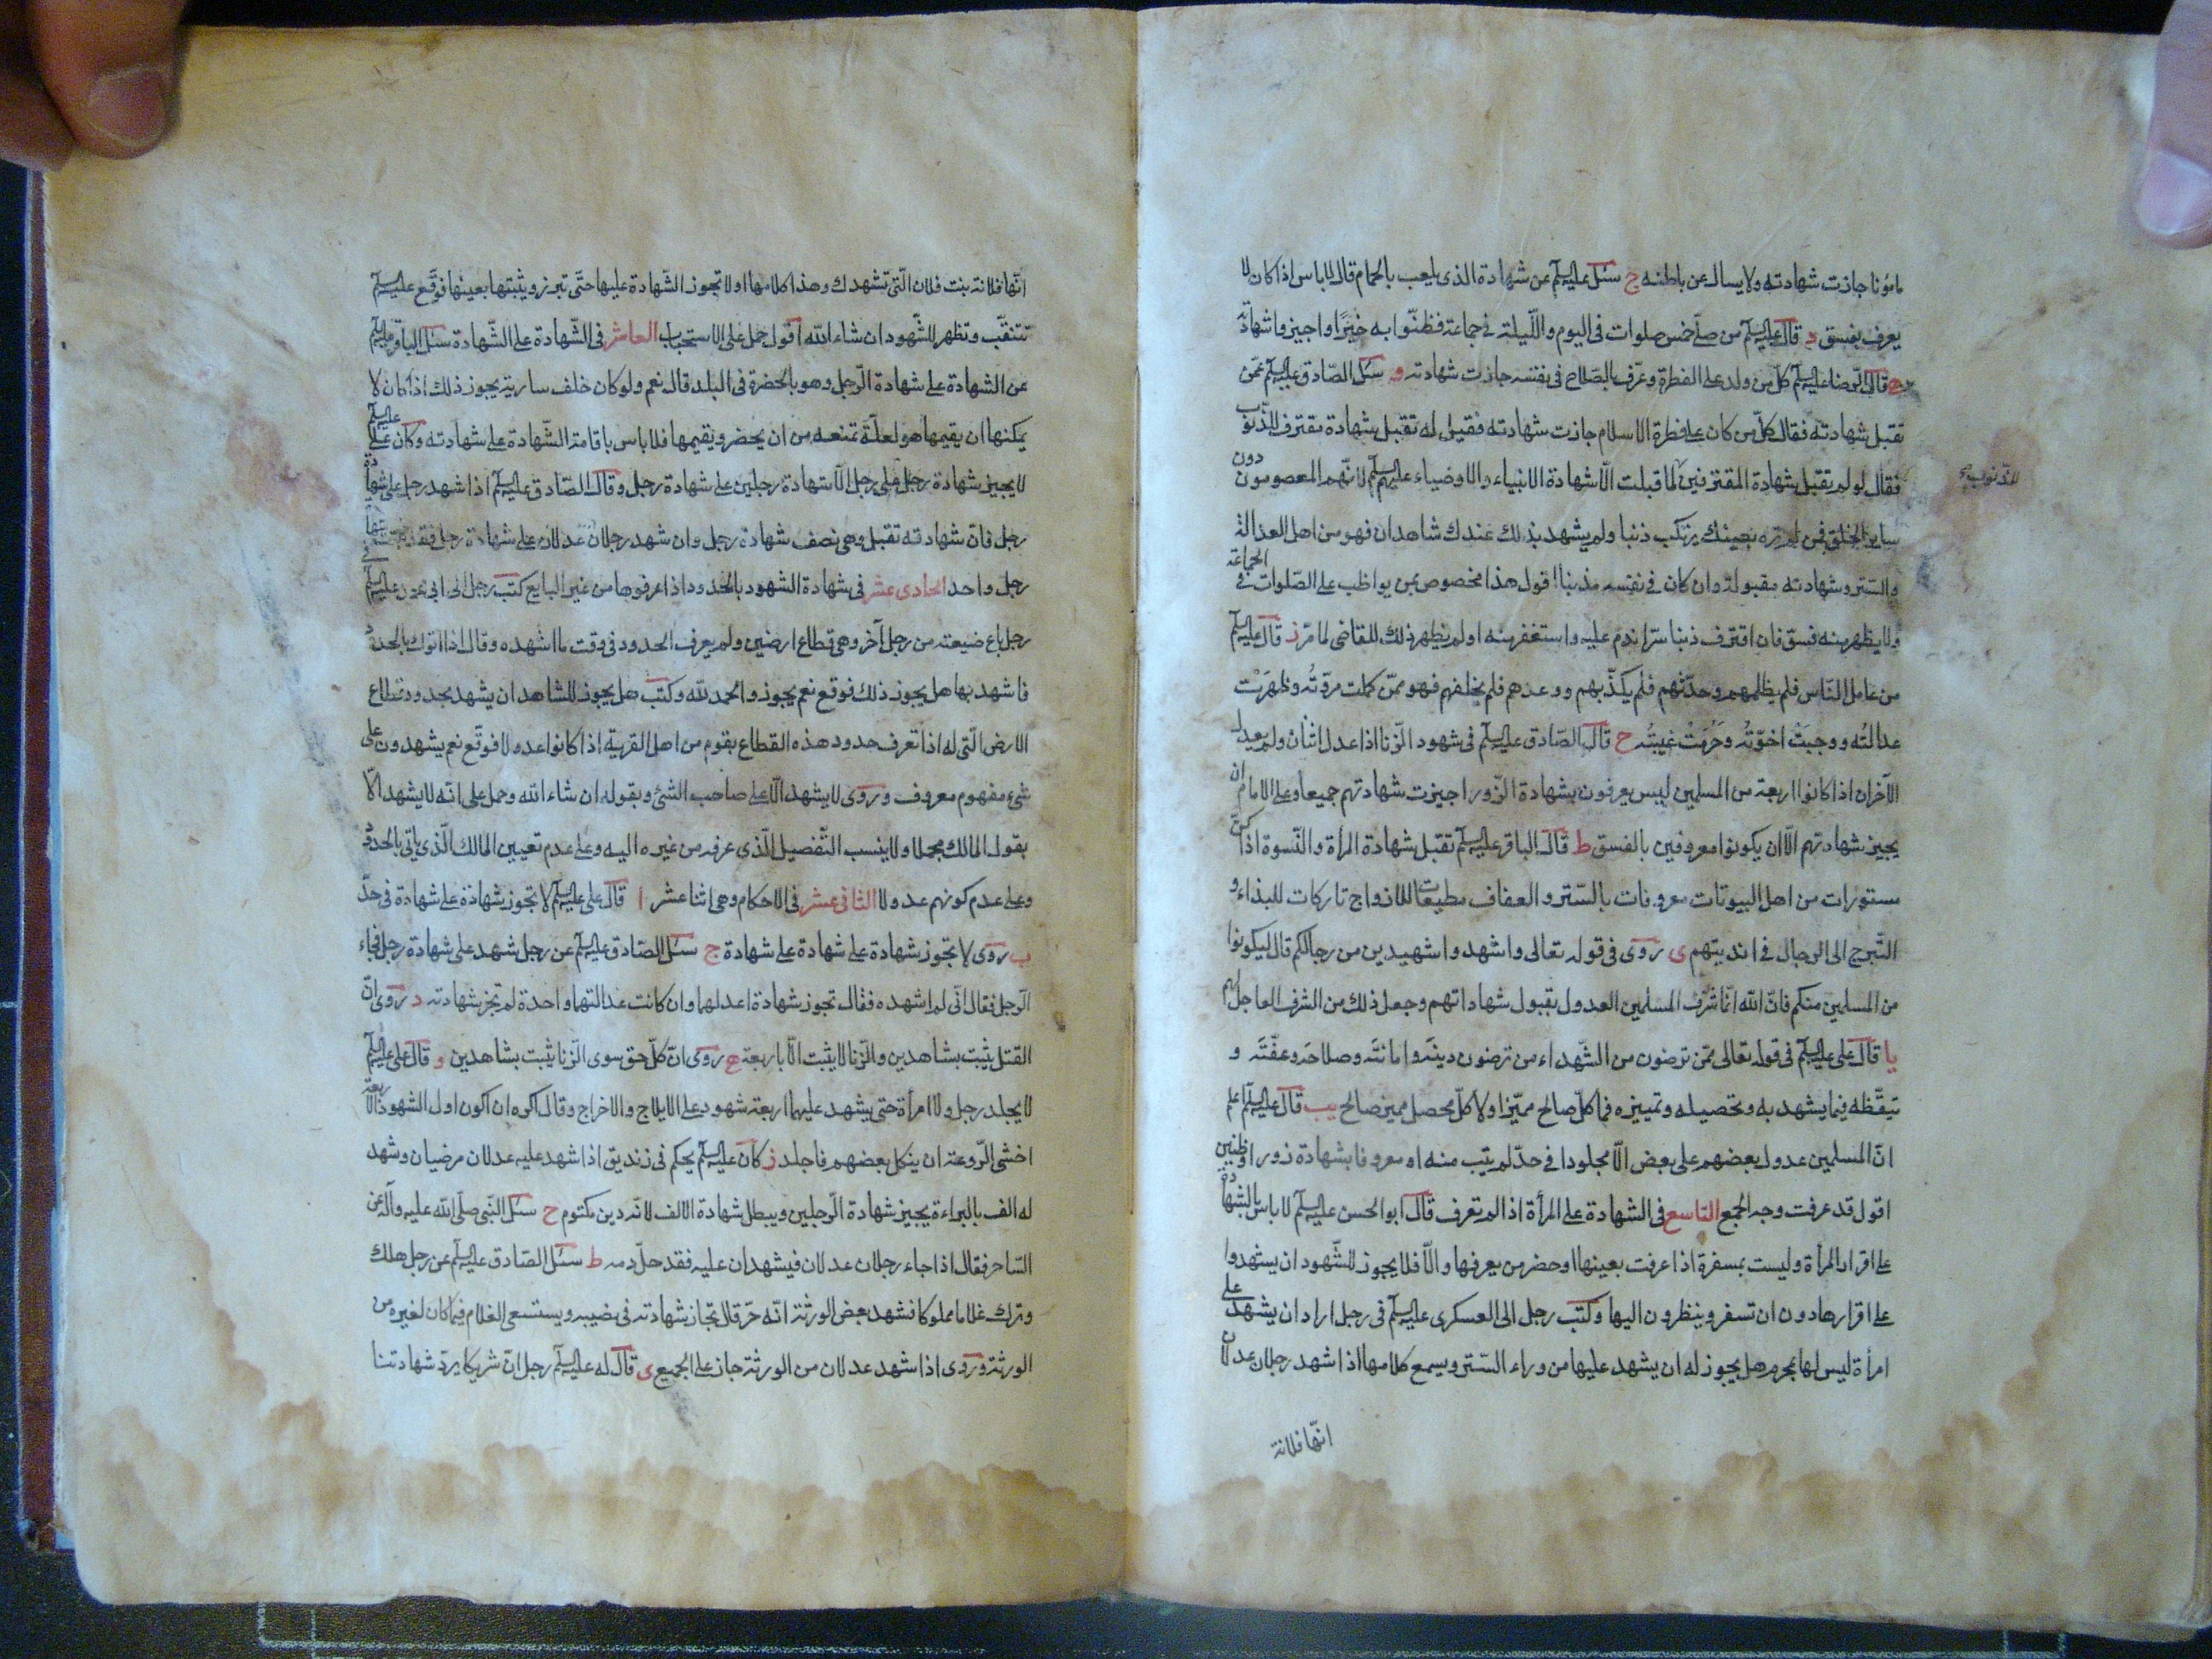 مامونا جازت شهادته ولا يسال عن باطنه ج سئل عليه السلم عن شهادة الذى يلعب بالحمام قال لا باس اذا كان لا
يعرف بفسق د قال عليه السلم من صلى خمس صلوات فى اليوم والليلة فى جماعة فظنّوا به خيرًا واجيزوا شهادته
ه قال الرّضا عليه السلم كلّ من ولد على الفطرة وعرّف بالصّلاح فى نفسه جازت شهادته و سئل الصّادق عليه السلم عمّن
تقبل شهادته فقال كلّ من كان على فطرة الاسلام جازت شهادته فقيل له تقبل شهادة مقترف الذّنوب
فقال لو لم تقبل شهادة المقترفين لما قبلت الّا شهادة الانبياء والاوصياء عليهم السلم لانّهم المعصومون دون
للذنوب
ساير الخلق فمن لم تره بعينك يرتكب ذنبا ولم يشهد بذلك عندك شاهدان فهو من اهل العدالة
والستر وشهادته مقبولة وان كان فى نفسه مذنبا اقول هذا مخصوص بمن يواظب على الصّلوات فى الجماعة
ولا يظهر منه فسق فان اقترف ذنبا سّرا ندم عليه واستغفر منه او لم يظهر ذلك للقاضى لما مرّ ز قال عليه السلم
من عامل النّاس فلم يظلمهم وحدّثهم فلم يكذّبهم ووعدهم فلم يخلفهم فهو ممّن كملت مروّتُه وظهرَتْ
عدالتُه ووجبَتْ اخوّتُه وحَرُمَتْ غيبتُه ح قال الصّادق عليه السلم فى شهود الزّنا اذا عدل اثنان ولم يعدل
الآخران اذا كانوا اربعة من المسلمين ليس يعرفون بشهادة الزّور اجيزت شهادتهم جميعا وعلى الامام ان
يجيز شهادتهم الّا ان يكونوا معروفين بالفسق ط قال الباقر عليه السلم تقبل شهادة المرأة والنّسوة اذا كنّ
مستورات من اهل البيوتات معروفات بالسّتر والعفاف مطيعات للازواج تاركات للبذاء و
التّبرج الى الرجال فى انديتهم ى روى فى قوله تعالى واشهدوا شهيدين من رجالكم قال ليكونوا
من المسلمين منكم فانّ الله انّما شرّف المسلمين العدول بقبول شهاداتهم وجعل ذلك من الشرف العاجل لهم
يا قال على عليه السلم فى قوله تعالى ممّن ترضون من الشّهداء من ترضون دينَه وامانتَه وصلاحَه وعفّتَه و
تيقّظه فيما يشهد به وتحصيله وتمييزه فما كلّ صالح مميّزا ولا كلّ محصل مميز صالح يب قال عليه السلم اعلم
انّ المسلمين عدول بعضهم على بعض الّا مجلودا فى حدّ لم يتب منه او معروفا بشهادة زور او ظنين
اقول قد عرفت وجه الجمع التاسع فى الشهادة على المرأة اذا لم تعرف قال ابو الحسن عليه السلم لا باس بالشهادة
على اقرار المرأة وليست بمسفرة اذا عرفت بعينها او حضر من يعرفها والّا فلا يجوز للشّهود ان يشهدوا
على اقرارها دون ان تسفر وينظرون اليها وكتب رجل الى العسكرى عليه السلم فى رجل اراد ان يشهد على
امرأة ليس لها بمحرم هل يجوز له ان يشهد عليها من وراء السّتر ويسمع كلامها اذا شهد رجلان عدلان
انّها فلانة
انّها فلانة بنت فلان الّتى تشهدك وهذا كلامها او لا تجوز الشّهادة عليها حتّى تبرز ويثبتها بعينها فوقّع عليه السلم
تتنقّب وتظهر للشّهود ان شاء الله اقول حمل على الاستحباب العاشر فى الشّهادة على الشّهادة سئل الباقر عليه السلم
عن الشهادة على شهادة الرّجل وهو بالحضرة فى البلد قال نعم ولو كان خلف سارية يجوز ذلك اذا كان لا
يمكنها ان يقيمها هو لعلّة تمنعه من ان يحضر ويقيمها فلا باس باقامة الشّهادة على شهادته وكان على عليه السلم
لا يجيز شهادة رجل على رجل الّا شهادة رجلين على شهادة رجل وقال الصّادق عليه السلم اذا شهد رجل على شهادة
رجل فانّ شهادته تقبل وهى نصف شهادة رجل وان شهد رجلان عدلان على شهادة رجل فقد ثبت شهادة
رجل واحد الحادى عشر فى شهادة الشهود بالحدود اذا عرفوها من غير البايع كتب رجل الى ابى محمد عليه السلم فى
رجل باع ضيعته من رجل آخر وهى قطاع ارضين ولم يعرف الحدود فى وقت ما اشهده وقال اذا اتوك بالحدود
فاشهد بها هل يجوز ذلك فوقع نعم يجوز والحمد لله وكتب هل يجوز للشاهد ان يشهد بحدود قطاع
الارض الّتى له اذا تعرف حدود هذه القطاع بقوم من اهل القرية اذا كانوا عدولا فوقّع نعم يشهدون على
شىء مفهوم معروف وروى لا يشهد الّا على صاحب الشئ وبقوله ان شاء الله وحمل على انّه لا يشهد الّا
بقول المالك مجملا ولا ينسب التّفصيل الّذى عرفه من غيره اليه وعلى عدم تعيين المالك الّذى ياتى بالحدود
وعلى عدم كونهم عدولا الثانى عشر فى الاحكام وهى اثنا عشر ا قال على عليه السلم لا تجوز شهادة على شهادة فى حدّ
ب روى لا تجوز شهادة على شهادة على شهادة ج سئل الصّادق عليه السلم عن رجل شهد على شهادة رجل فجاء
الرّجل فقال انّى لم اشهده فقال تجوز شهادة اعدلهما وان كانت عدالتهما واحدة لم تجز شهادته د روى انّ
القتل يثبت بشاهدين والزّنا لا يثبت الّا باربعة ه روى انّ كلّ حق سوى الزّنا يثبت بشاهدين و قال على عليه السلم
لا يجلد رجل ولا امرأة حتى يشهد عليهما اربعة شهود على الايلاج والاخراج وقال اكره ان اكون اول الشهود الاربعة
اخشى الرّوعة ان ينكل بعضهم فاجلد ز كان عليه السلم يحكم فى زنديق اذا شهد عليه عدلان مرضيان وشهد
له الف بالبراءة يجيز شهادة الرّجلين ويبطل شهادة الالف لانّه دين مكتوم ح سئل النّبى صلّى الله عليه وآله عن
السّاحر فقال اذا جاء رجلان عدلان فيشهدان عليه فقد حلّ دمه ط سئل الصّادق عليه السلم عن رجل هلك
وترك غلاما مملوكا فشهد بعض الورثة انّه حرّ قال تجاز شهادته فى نصيبه ويستسعى الغلام فيما كان لغيره من
الورثة وروى اذا شهد عدلان من الورثة جاز على الجميع ى قال له عليه السلم رجل انّ شريكا يردّ شهادتنا